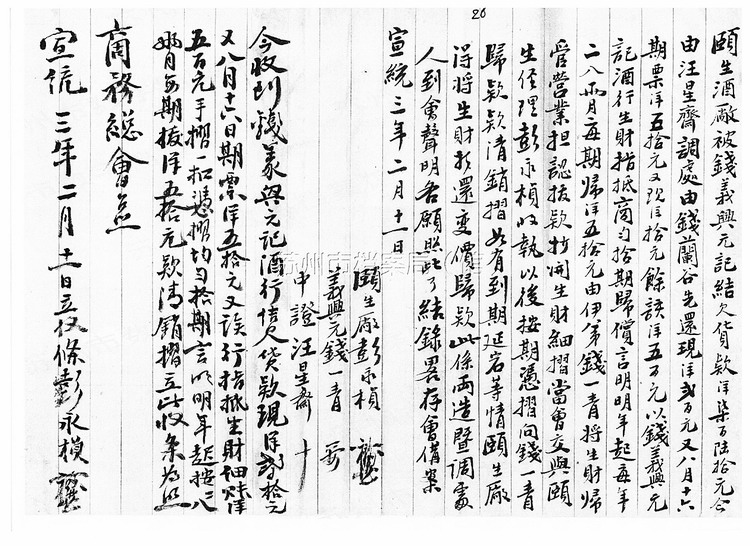 20
頤生酒廠被錢義興元記結欠貨款洋柒百陸拾元今
由汪星齋調處由錢蘭谷先還現洋弍百元又八月十六
期票洋五拾元又現洋拾元餘該洋五百元以錢義興元
記酒行生財指抵商勻拾期歸償言明明年起每年
二八兩月每期歸洋五拾元由伊弟錢一青將生財歸
管營業担認拔款抄開生財細摺當會交與頤
生經理彭永楨收執以後按期憑摺向錢一青
歸款款清銷摺如有到期延宕等情頤生廠
得將生財折還變價歸款此係兩造暨調處
人到會聲明各願照此了結錄畧存會備案
宣統三年二月十一日
頤生廠彭永楨
義興元錢一青
中證汪星齋 十
今收到錢義興元記酒行恊欠貨款現洋弍拾元
又八月十六日期票洋五拾元又該行指抵生財細賬洋
五百元手摺一扣憑摺均勻拾期言明明年起按二八
兩月每期拔洋五拾元款清銷摺立此收条為照
商務總會台
宣統三年二月十一日立收條彭永楨
蘇州市檔案局